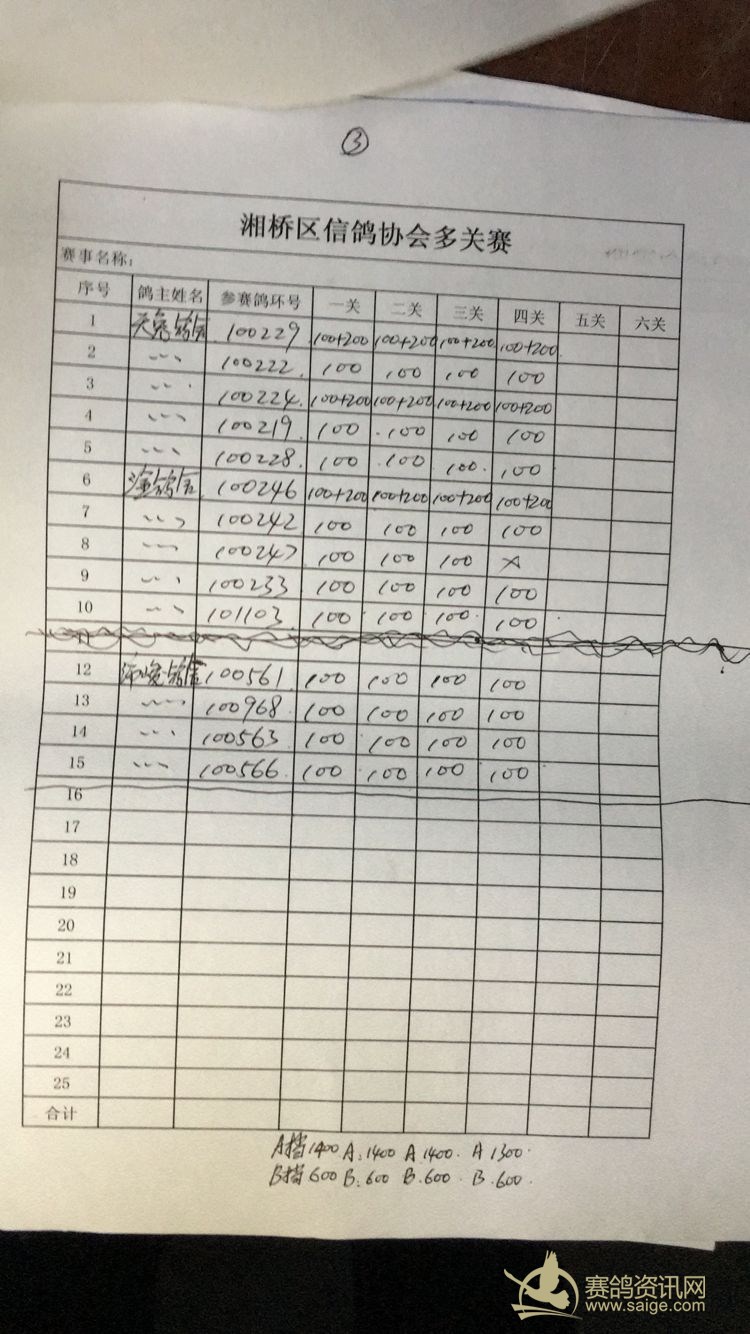 ③
湘桥区信鸽协会多关赛
赛事名称:
序号 鸽主姓名 参赛鸽环号 一关 二关 三关 四关 五关 六关
1 天兔鸽舍 100229 100+200 100+200 100+200 100+200
2 ､､､ 100222 100 100 100 100
3 ､､､ 100224 100+200 100+200 100+200 100+200
4 ､､､ 100219 100 100 100 100
5 ､､､ 100228 100 100 100 100
6 鸽舍 100246 100+200 100+200 100+200 100+200
7 ､､､ 100242 100 100 100 100
8 ､､､ 100247 100 100 100 ×
9 ､､､ 100233 100 100 100 100
10 ､､､ 101103 100 100 100 100
11
12 鸽舍 100561 100 100 100 100
13 ､､､ 100968 100 100 100 100
14 ､､､ 100563 100 100 100 100
15 ､､､ 100566 100 100 100 100
16
17
18
19
20
21
22
23
24
25
合计
A档1400 A:1400 A 1400. A 1300.
B档600 B:600 B.600. B.600.
赛鸽资讯网
www.saige.com